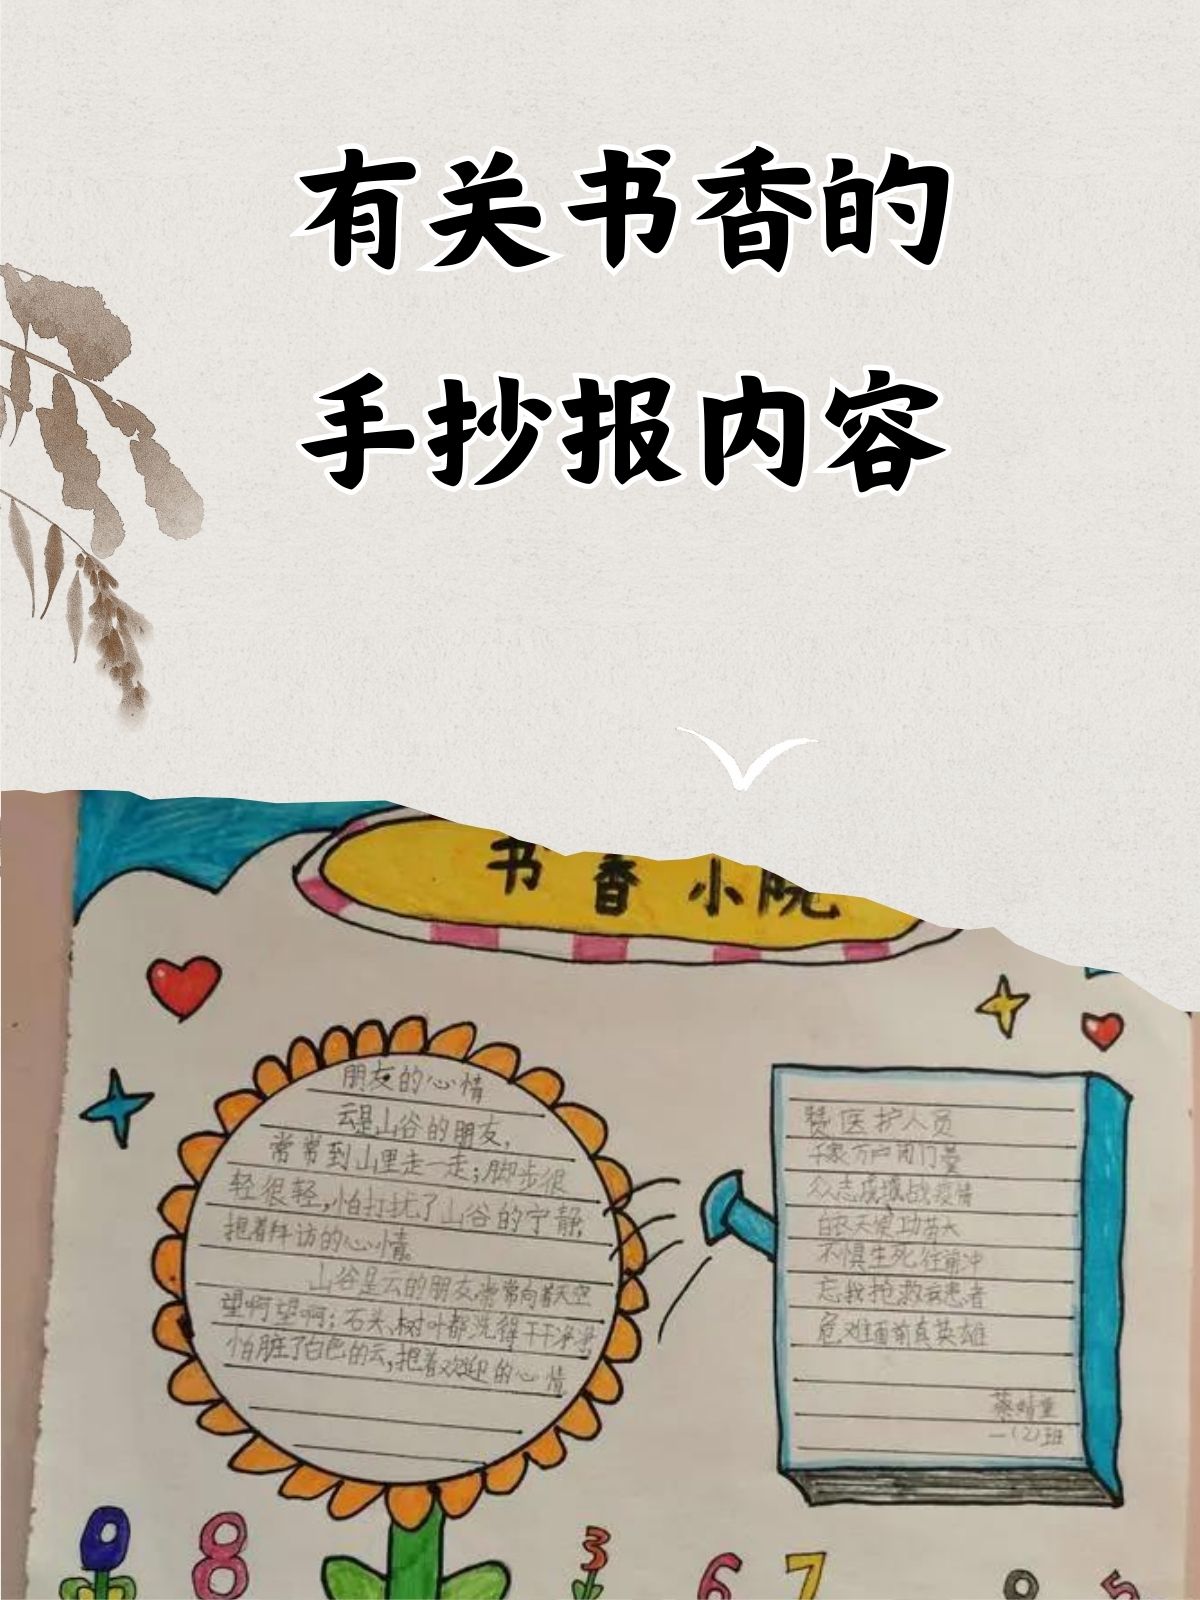 有关书香的
手抄报内容
书香小院
朋友的心情
云是山谷的朋友,
常常到山里走一走;脚步很
轻很轻,怕打扰了山谷的宁静,
抱着拜访的心情。
山谷是云的朋友,常常向着天空
望啊望啊;石头、树叶都洗得干干净净,
怕脏了白色的云,抱着欢迎的心情
赞医护人员
千家万户闭门
众志成城战疫情
白衣天使功劳大
不惧生死往前冲
忘我抢救病患者
危难面前真英雄
一(2)班
0 8 3 6 7 9 5